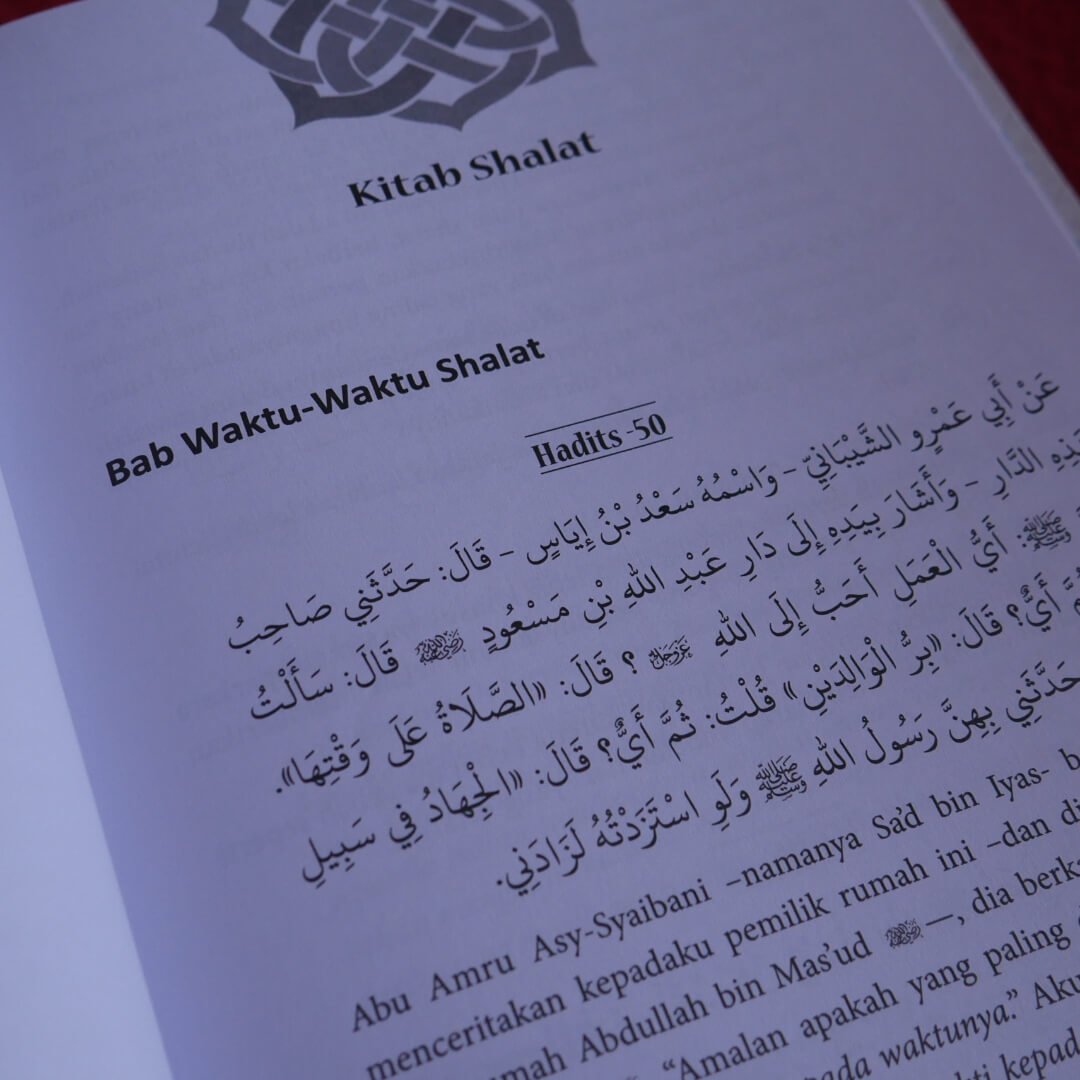 Kitab Shalat
Bab Waktu-Waktu Shalat
Hadits -50
عَنْ أَبِي عَمْرٍو الشَّيْبَانِيِّ - وَاسْمُهُ سَعْدُ بْنُ إِيَاسٍ - قَالَ: حَدَّثَنِي صَاحِبُ
الدَّارِ - وَأَشَارَ بِيَدِهِ إِلَى دَارِ عَبْدِ اللهِ بْنِ مَسْعُودٍ ﵁ قَالَ: سَأَلْتُ
ﷺ: أَيُّ الْعَمَلِ أَحَبُّ إِلَى اللهِ ﷿ ؟ قَالَ: «الصَّلَاةُ عَلَى وَقْتِهَا».
أَيٌّ؟ قَالَ: «بِرُّ الْوَالِدَيْنِ» قُلْتُ: ثُمَّ أَيٌّ؟ قَالَ: «الْجِهَادُ فِي سَبِيلِ
حَدَّثَنِي بِهِنَّ رَسُولُ اللهِ ﷺ وَلَوِ اسْتَزَدْتُهُ لَزَادَنِي.
Abu Amru Asy-Syaibani –namanya Sa'd bin Iyas-
menceritakan kepadaku pemilik rumah ini –dan
Abdullah bin Mas'ud ﵁ —, dia
“Amalan apakah yang paling
waktunya.” Aku